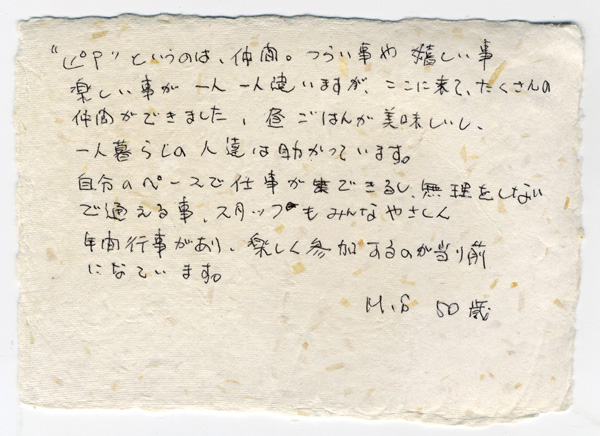 "ピア"というのは、仲間。つらい事や 嬉しい事
楽しい事が 一人一人違いますが、ここに来て、たくさんの
仲間ができました、昼ごはんが美味しいし、
一人暮らしの人達は助かっています。
自分のペースで仕事が できるし、無理をしない
で通える事、スタッフもみんなやさしく
年間行事があり、楽しく参加するのが当り前
になています。
M.S 50歳